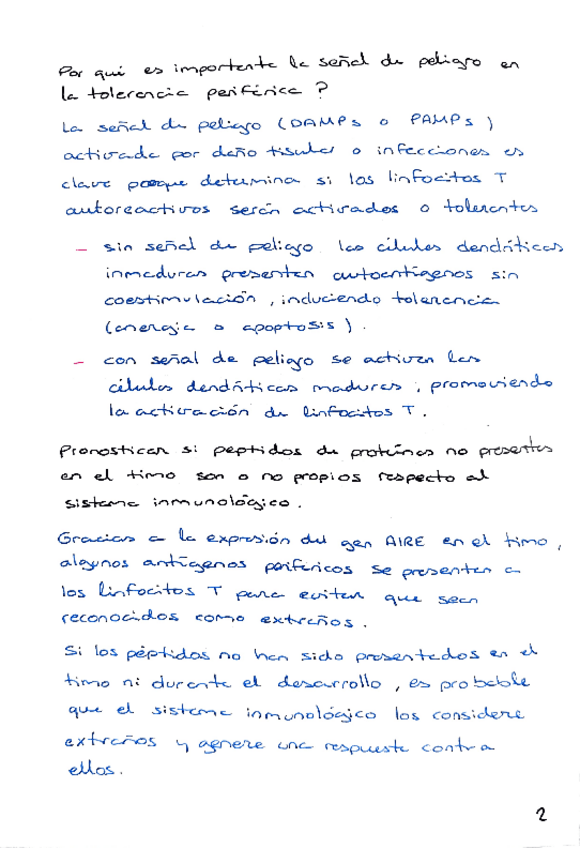 Por qué es importante la señal de peligro en
la tolerancia periférica?
La señal de peligro (DAMPs o PAMPs)
activada por daño tisular o infecciones es
clave porque determina si los linfocitos T
autoreactivos serán activados o tolerantes
- sin señal de peligro las células dendríticas
inmaduras presentan autoantígenos sin
coestimulación, induciendo tolerancia
(anergia o apoptosis).
- con señal de peligro se activan las
células dendríticas maduras, promoviendo
la activación de linfocitos T.
Pronosticar si peptidos de proteínas no presentes
en el timo son o no propios respecto al
sistema inmunológico.
Gracias a la expresión del gen AIRE en el timo,
algunos antígenos periféricos se presentan a
los linfocitos T para evitar que sean
reconocidos como extraños.
Si los péptidos no han sido presentados en el
timo ni durante el desarrollo, es probable
que el sistema inmunológico los considere
extraños y genere una respuesta contra
ellos.
2